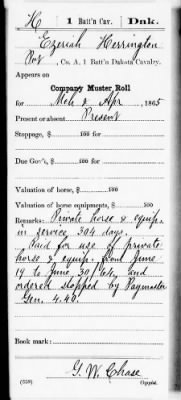 H | 1 Batt'n Cav. | Dak.
Ezeriah Herrington
Pvt, Co. A, 1 Batt'n Dakota Cavalry.
Appears on
Company Muster Roll
for Mch & Apr, 1865
Present or absent Present
Stoppage, $ 100 for
Due Gov't, $ 100 for
Valuation of horse, $ 100
Valuation of horse equipments, $ 100
Remarks: Private horse & equip.
in service 394 days.
Paid for use of private
horse & equip. from June
19 to June 30/64, and
ordered stopped by Paymaster
Gen. 4.40.
Book mark:
G. W. Chase
(359) Copyist.